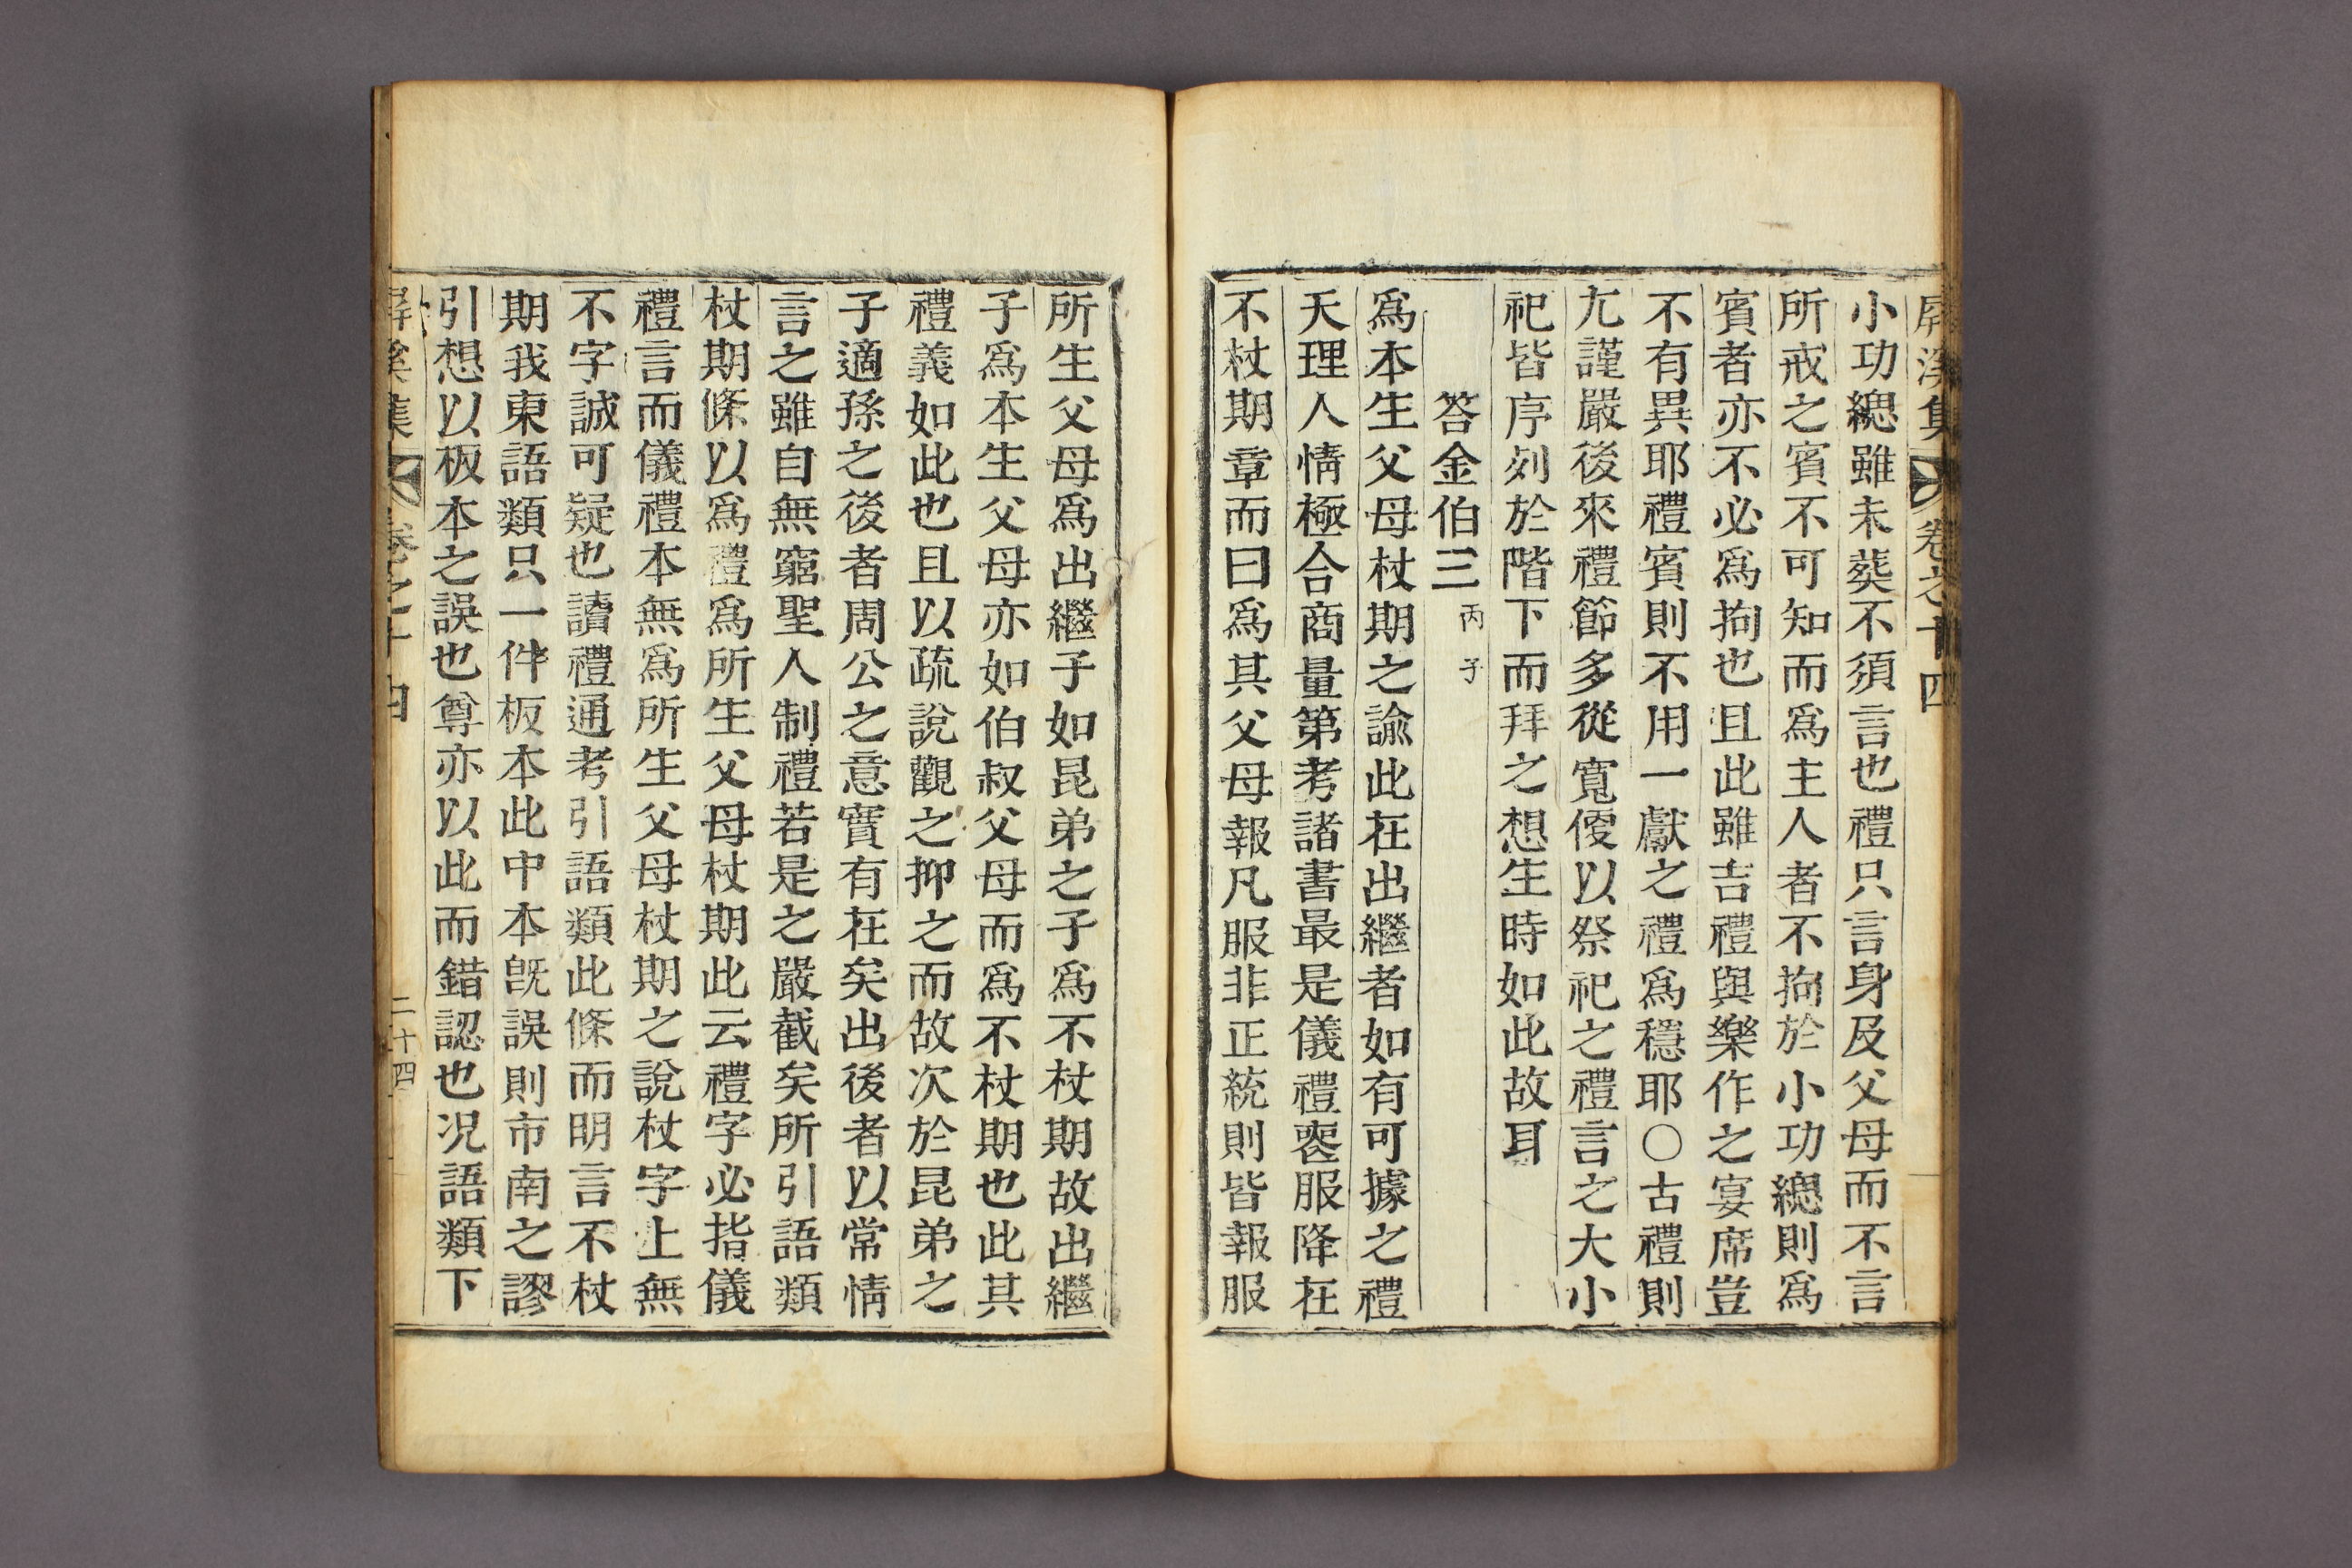 屛溪集 卷之十四
小功緦雖未葬不須言也禮只言身及父母而不言
所戒之賓不可知而爲主人者不拘於小功緦則爲
賓者亦不必爲拘也且此雖吉禮與樂作之宴席豈
不有異耶禮賓則不用一獻之禮爲穩耶○古禮則
尤謹嚴後來禮節多從寬便以祭祀之禮言之大小
祀皆序列於階下而拜之想生時如此故耳
答金伯三 丙子
爲本生父母杖期之諭此在出繼者如有可據之禮
天理人情極合商量第考諸書最是儀禮喪服降在
不杖期章而曰爲其父母報凡服非正統則皆報服
所生父母爲出繼子如昆弟之子爲不杖期故出繼
子爲本生父母亦如伯叔父母而爲不杖期也此其
禮義如此也且以疏說觀之抑之而故次於昆弟之
子適孫之後者周公之意實有在矣出後者以常情
言之雖自無窮聖人制禮若是之嚴截矣所引語類
杖期條以爲禮爲所生父母杖期此云禮字必指儀
禮言而儀禮本無爲所生父母杖期之說杖字上無
不字誠可疑也讀禮通考引語類此條而明言不杖
期我東語類只一件板本此中本旣誤則市南之謬
引想以板本之誤也尊亦以此而錯認也况語類下
屛溪集 卷之十四 二十四